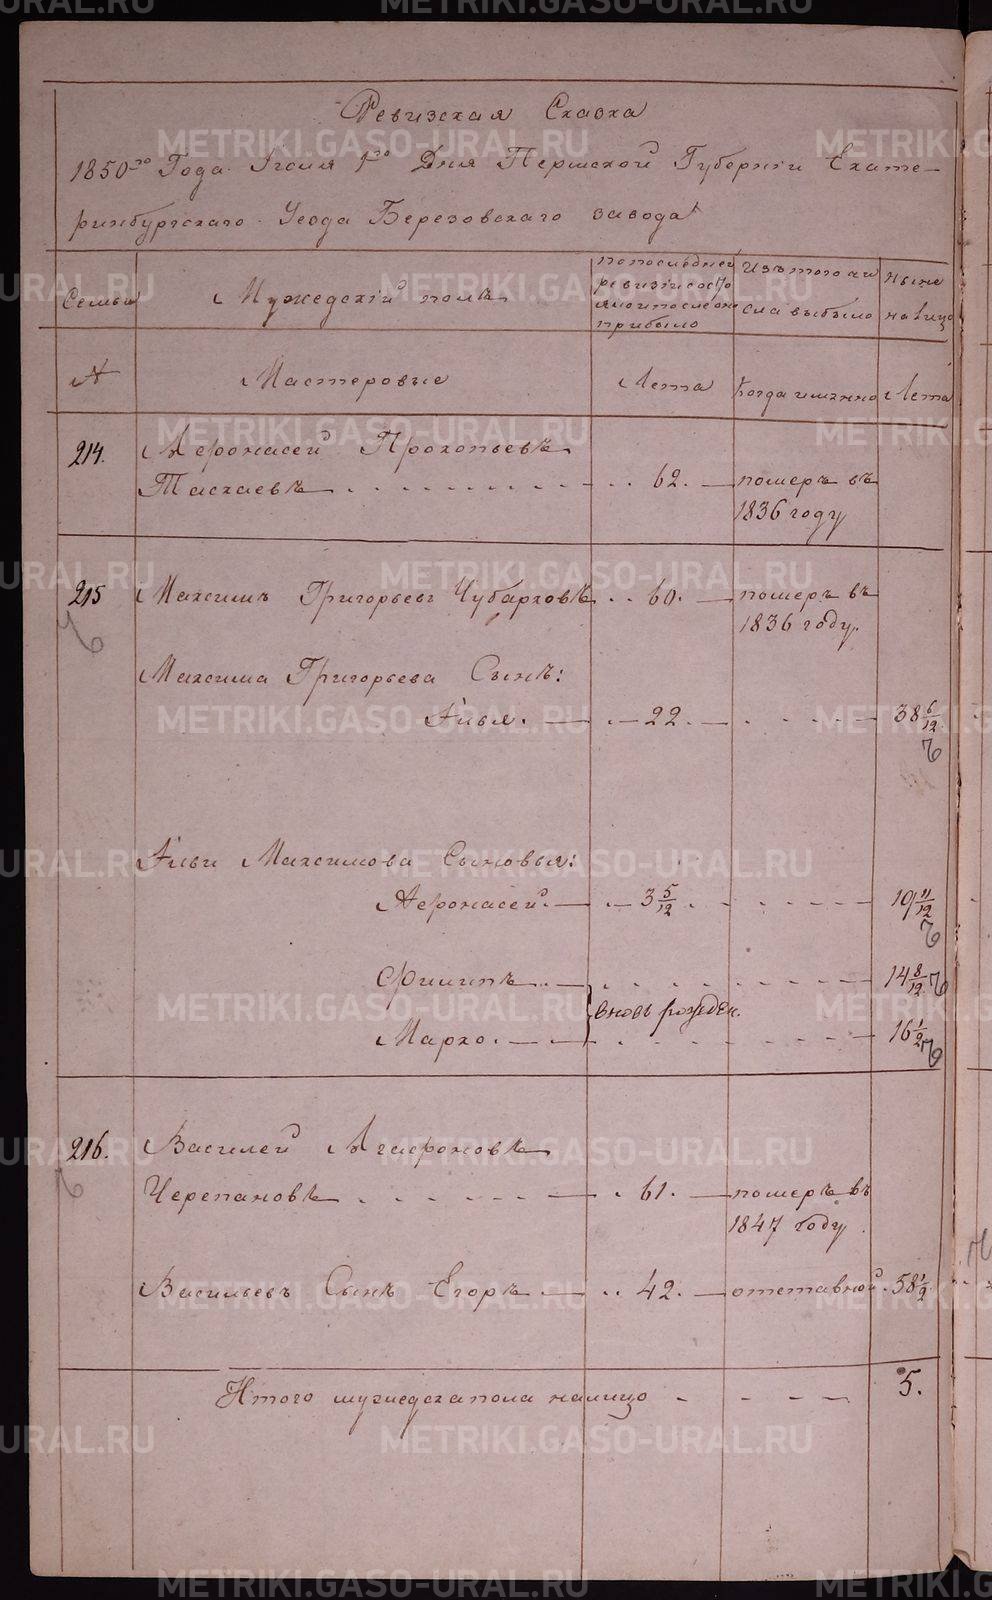 Ревизская Сказка
1850го Года Июля 1го Дня Пермской Губернiи Екате-
ринбургскаго Уезда Березовскаго завода
Семьи
Мужедскiй полъ
попоследней ревизiи состояло и после оной прибыло
Изъ того числа выбыло
Ныне налицо
№
Мастеровые
Лета
Когда именно
Лета
214. Афонасей Прокопьевъ
Таскаевъ 62. померъ въ
1836 году
215 Максимъ Григорьевъ Чубарковъ 60. померъ въ
1836 году.
Максима Григорьева Сынъ:
Илья. 22. 38 6/12
Ильи Максимова Сыновья:
Афонасей. 3 5/12 19 11/12
Филипъ 14 8/12
вновь рожден.
Марко. 16 1/2
216. Василей Агафоновъ
Черепановъ 61. померъ въ
1847 году.
Васильевъ Сынъ Егоръ 42. отставной. 58 1/2
Итого мужедска пола налицо 5.
METRIKI.GASO-URAL.RU